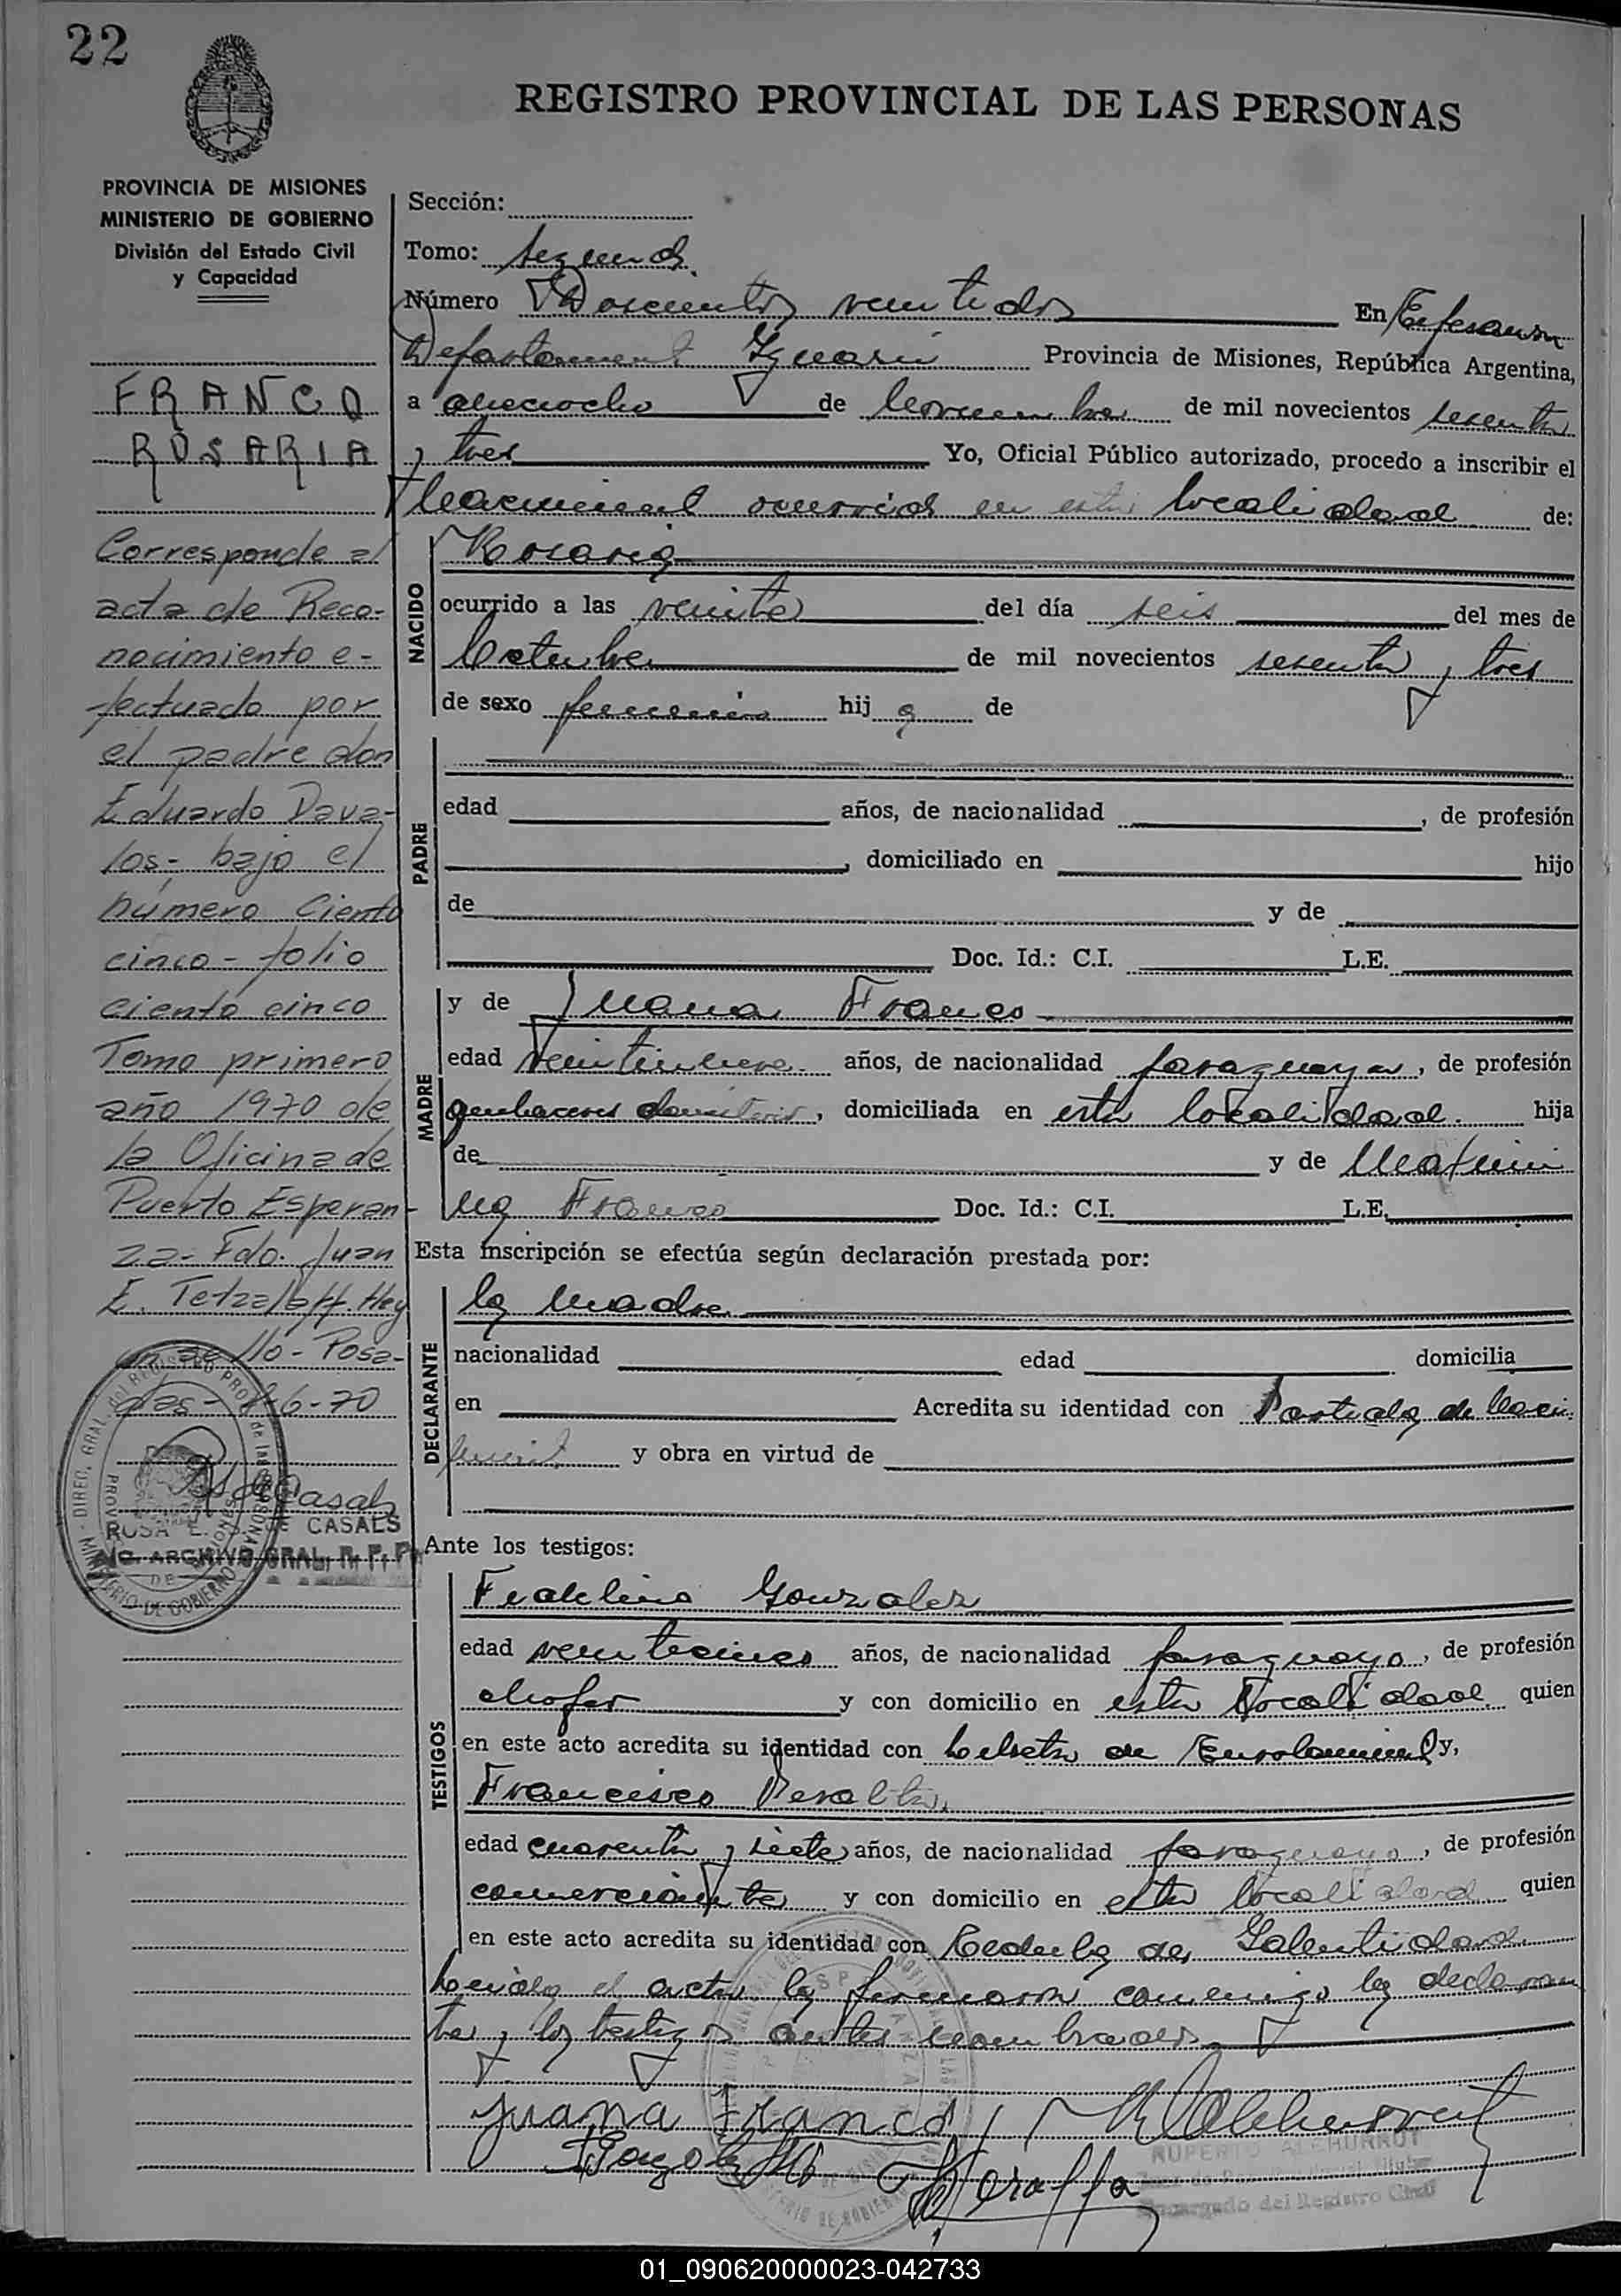 22
REGISTRO PROVINCIAL DE LAS PERSONAS
PROVINCIA DE MISIONES
MINISTERIO DE GOBIERNO
División del Estado Civil
y Capacidad
FRANCO
ROSARIA
Corresponde al
acta de Reco-
nocimiento e-
fectuado por
el padre don
Eduardo Dava-
los- bajo el
número Ciento
cinco - folio
ciento cinco
Tomo primero
año 1970 de
la Oficina de
Puerto Esperan-
za- Fdo. Juan
E. Tetzlaff. Hay
un sello - Posa-
das - 6-70
ROSA E. DE CASALS
ARCHIVO GRAL. R. P. P.
Sección:
Tomo: segundo
Número Doscientos veintidos En Esperanza
Departamento Iguazú Provincia de Misiones, República Argentina,
a dieciocho de Noviembre de mil novecientos sesenta
y tres Yo, Oficial Público autorizado, procedo a inscribir el
Nacimiento ocurrido en esta localidad de:
NACIDO
Rosaria
ocurrido a las veinte del día seis del mes de
Octubre de mil novecientos sesenta y tres
de sexo femenino hij a de
PADRE
edad años, de nacionalidad , de profesión
, domiciliado en hijo
de y de
Doc. Id.: C.I. L.E.
MADRE
y de Juana Franco
edad veintinueve años, de nacionalidad paraguaya, de profesión
quehaceres domésticos, domiciliada en esta localidad. hija
de y de Maximi
na Franco Doc. Id.: C.I. L.E.
Esta inscripción se efectúa según declaración prestada por:
DECLARANTE
la madre
nacionalidad edad domicilia
en Acredita su identidad con Partida de Naci
miento y obra en virtud de
Ante los testigos:
TESTIGOS
Fidelino Gonzalez
edad veinticinco años, de nacionalidad paraguayo, de profesión
chofer y con domicilio en esta localidad quien
en este acto acredita su identidad con Libreta de Enrolamiento y,
Francisco Peralta
edad cuarenta y siete años, de nacionalidad paraguayo, de profesión
comerciante y con domicilio en esta localidad quien
en este acto acredita su identidad con Cedula de Identidad
Leida el acta la firmaron conmigo la declaran
te y los testigos antes nombrados
Juana Franco
RUPERTO ALCHURRUT
Encargado del Registro Civil
01_090620000023-042733